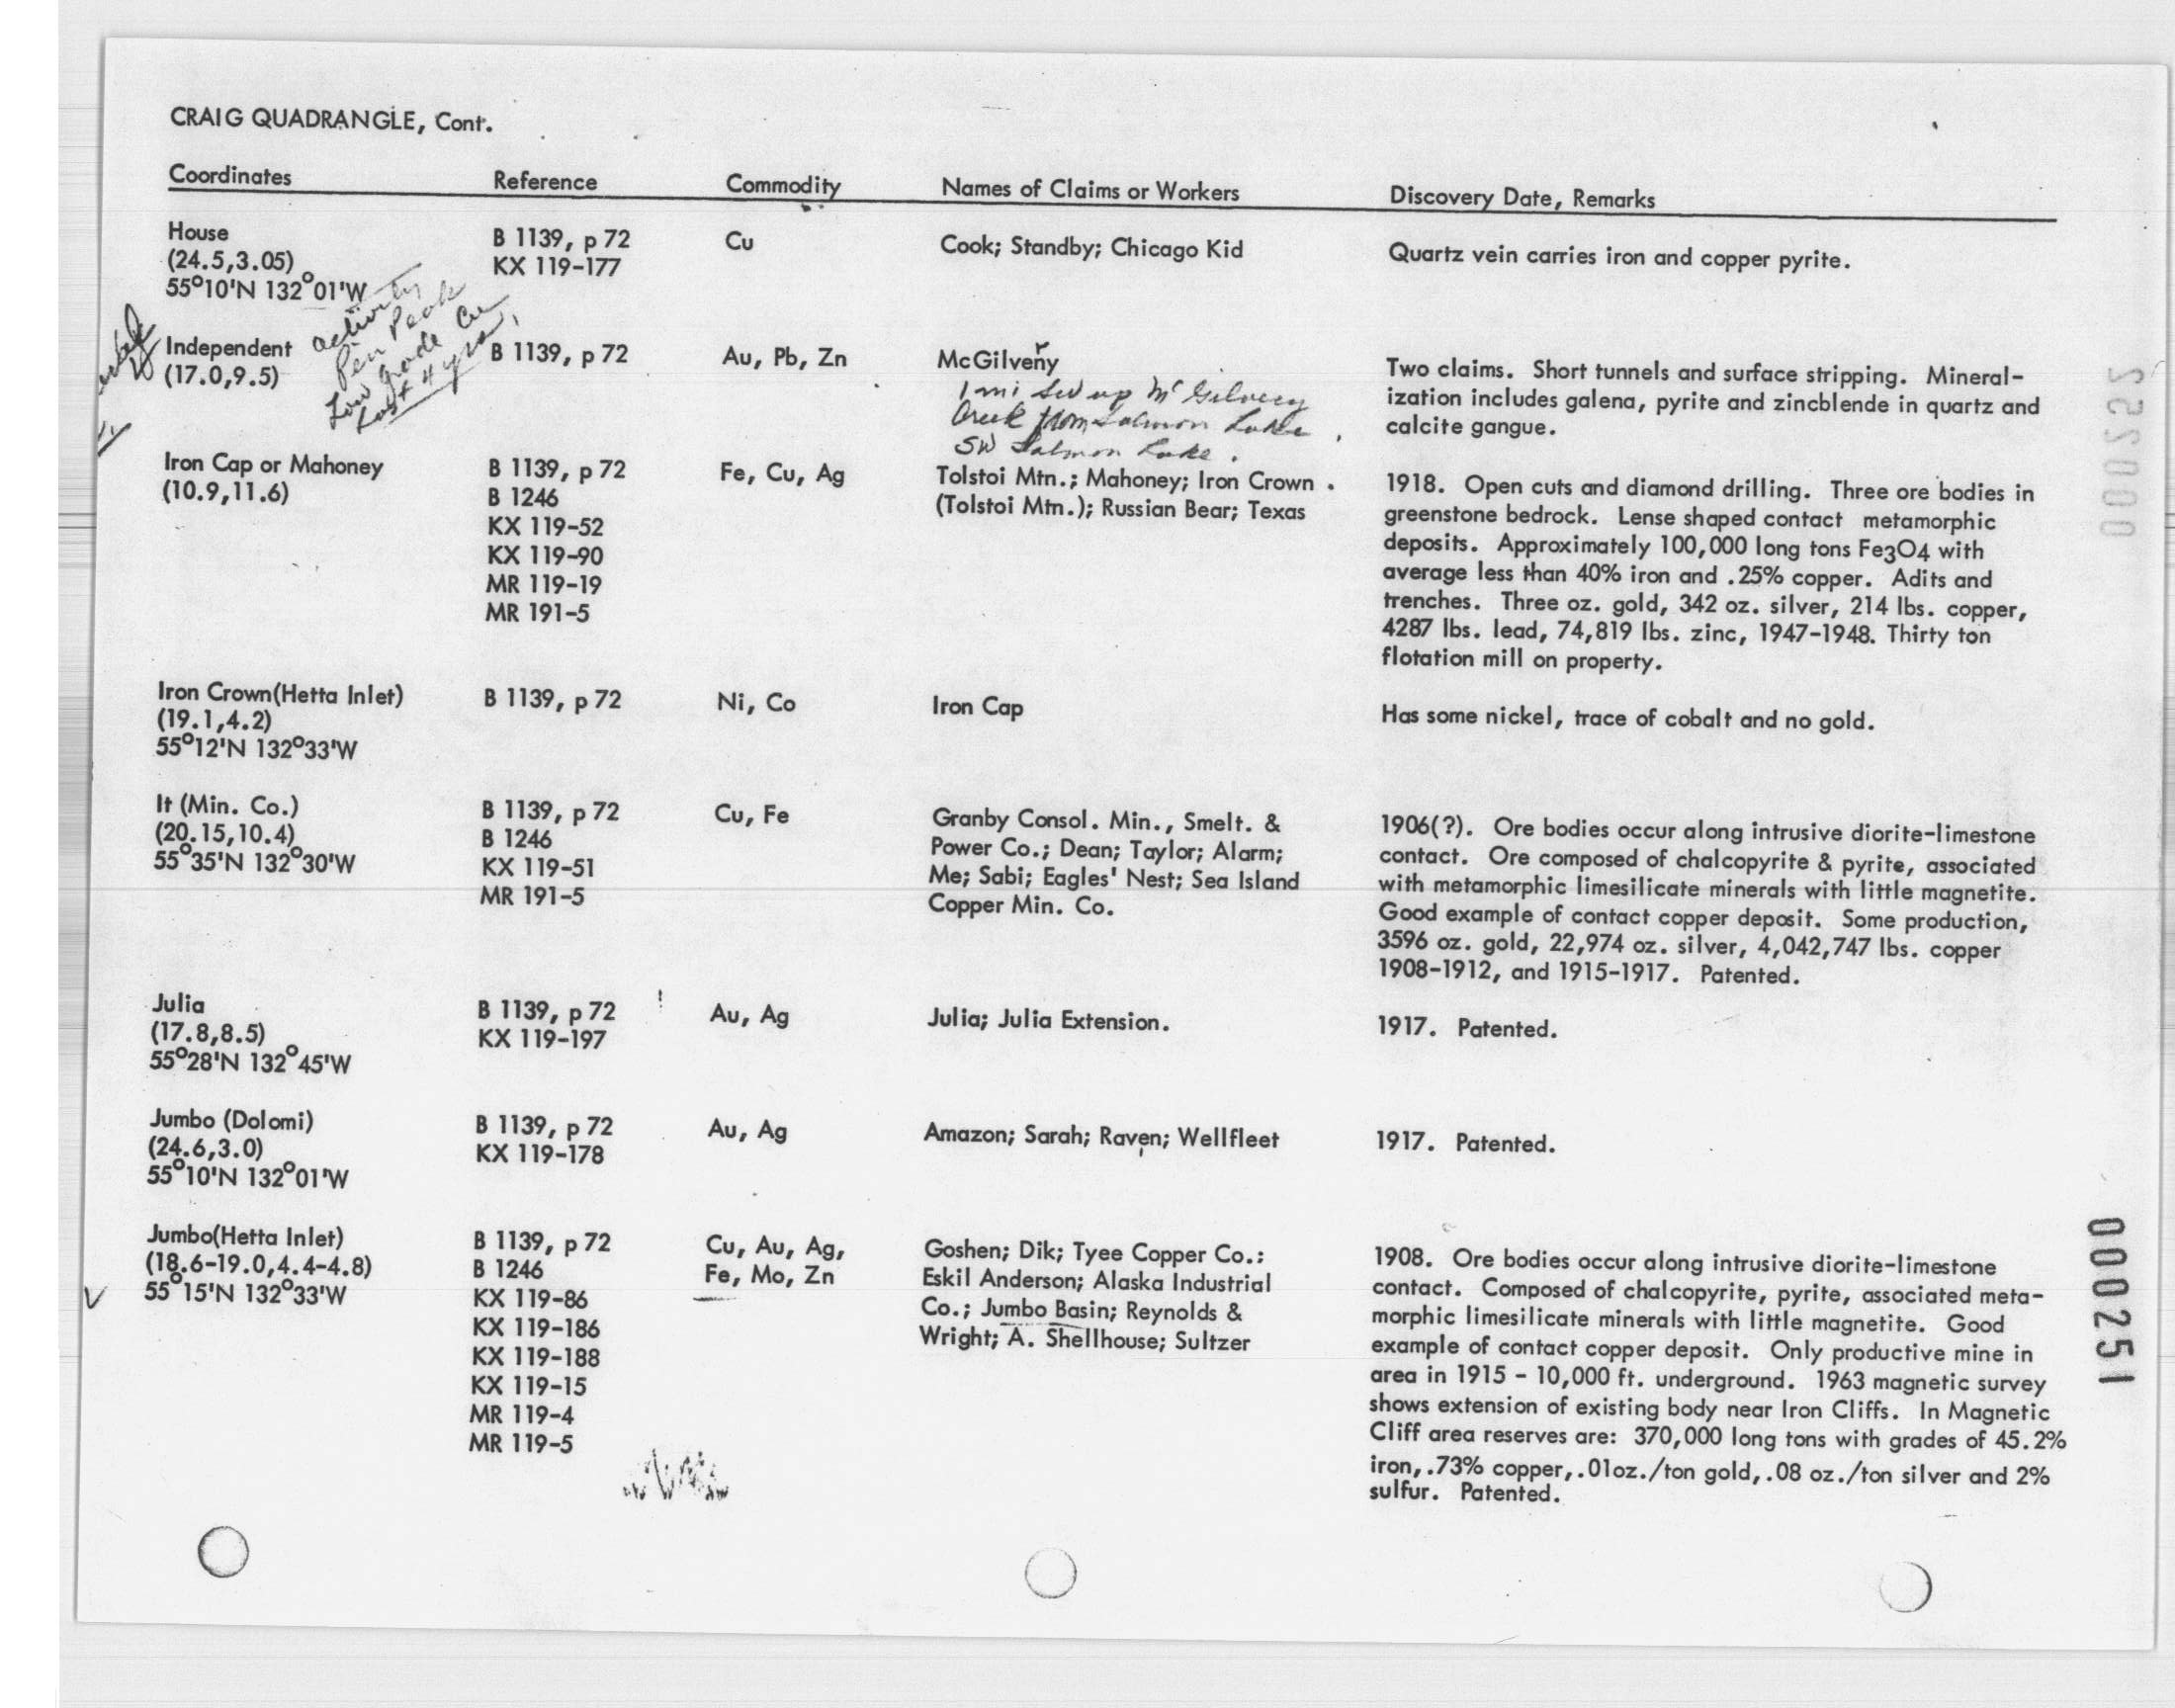 CRAIG QUADRANGLE, Cont.
Coordinates Reference Commodity Names of Claims or Workers Discovery Date, Remarks
House B 1139, p 72 Cu Cook; Standby; Chicago Kid Quartz vein carries iron and copper pyrite.
(24.5,3.05) KX 119-177
55°10'N 132°01'W
activity
Pen Peak
Low grade Cu
Last 4 yrs.
Independent B 1139, p 72 Au, Pb, Zn McGilvery Two claims. Short tunnels and surface stripping. Mineral-
(17.0,9.5) 1 mi SW up McGilvery ization includes galena, pyrite and zincblende in quartz and
Creek from Salmon Lake calcite gangue.
SW Salmon Lake.
Iron Cap or Mahoney B 1139, p 72 Fe, Cu, Ag Tolstoi Mtn.; Mahoney; Iron Crown 1918. Open cuts and diamond drilling. Three ore bodies in
(10.9,11.6) B 1246 (Tolstoi Mtn.); Russian Bear; Texas greenstone bedrock. Lense shaped contact metamorphic
KX 119-52 deposits. Approximately 100,000 long tons Fe3O4 with
KX 119-90 average less than 40% iron and .25% copper. Adits and
MR 119-19 trenches. Three oz. gold, 342 oz. silver, 214 lbs. copper,
MR 191-5 4287 lbs. lead, 74,819 lbs. zinc, 1947-1948. Thirty ton
flotation mill on property.
Iron Crown(Hetta Inlet) B 1139, p 72 Ni, Co Iron Cap Has some nickel, trace of cobalt and no gold.
(19.1,4.2)
55°12'N 132°33'W
It (Min. Co.) B 1139, p 72 Cu, Fe Granby Consol. Min., Smelt. & 1906(?). Ore bodies occur along intrusive diorite-limestone
(20.15,10.4) B 1246 Power Co.; Dean; Taylor; Alarm; contact. Ore composed of chalcopyrite & pyrite, associated
55°35'N 132°30'W KX 119-51 Me; Sabi; Eagles' Nest; Sea Island with metamorphic limesilicate minerals with little magnetite.
MR 191-5 Copper Min. Co. Good example of contact copper deposit. Some production,
3596 oz. gold, 22,974 oz. silver, 4,042,747 lbs. copper
1908-1912, and 1915-1917. Patented.
Julia B 1139, p 72 Au, Ag Julia; Julia Extension. 1917. Patented.
(17.8,8.5) KX 119-197
55°28'N 132°45'W
Jumbo (Dolomi) B 1139, p 72 Au, Ag Amazon; Sarah; Raven; Wellfleet 1917. Patented.
(24.6,3.0) KX 119-178
55°10'N 132°01'W
Jumbo(Hetta Inlet) B 1139, p 72 Cu, Au, Ag, Goshen; Dik; Tyee Copper Co.: 1908. Ore bodies occur along intrusive diorite-limestone
(18.6-19.0,4.4-4.8) B 1246 Fe, Mo, Zn Eskil Anderson; Alaska Industrial contact. Composed of chalcopyrite, pyrite, associated meta-
55°15'N 132°33'W KX 119-86 Co.; Jumbo Basin; Reynolds & morphic limesilicate minerals with little magnetite. Good
KX 119-186 Wright; A. Shellhouse; Sultzer example of contact copper deposit. Only productive mine in
KX 119-188 area in 1915 - 10,000 ft. underground. 1963 magnetic survey
KX 119-15 shows extension of existing body near Iron Cliffs. In Magnetic
MR 119-4 Cliff area reserves are: 370,000 long tons with grades of 45.2%
MR 119-5 iron, .73% copper, .01oz./ton gold, .08 oz./ton silver and 2%
sulfur. Patented.
000252
000251